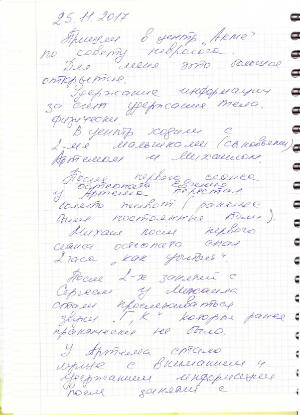 25.11.2017
Пришли в центр "Акме"
по совету невролога.
Для меня это большое
открытие.
Удержание информации
за счёт удержание тела.
физически
В центр ходили с
2-мя малышками (близнецами)
Артёмом и Михаилом.
После первого сеанса
остеопата Евгения
у Артёма перестал
болеть живот (раньше
были постоянные боли).
Михаил после первого
сеанса остеопата спал
2 часа, как убитый.
После 2-х занятий с
Сергеем у Михаила
стали проскакиваться
звуки "Г, К" которых ранее
практически не было.
У Артёма стало
лучше с вниманием и
удержанием информации
После занятий с